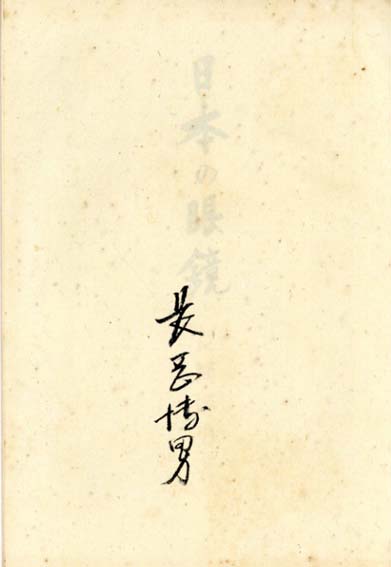 日本の眼鏡
長岡博男